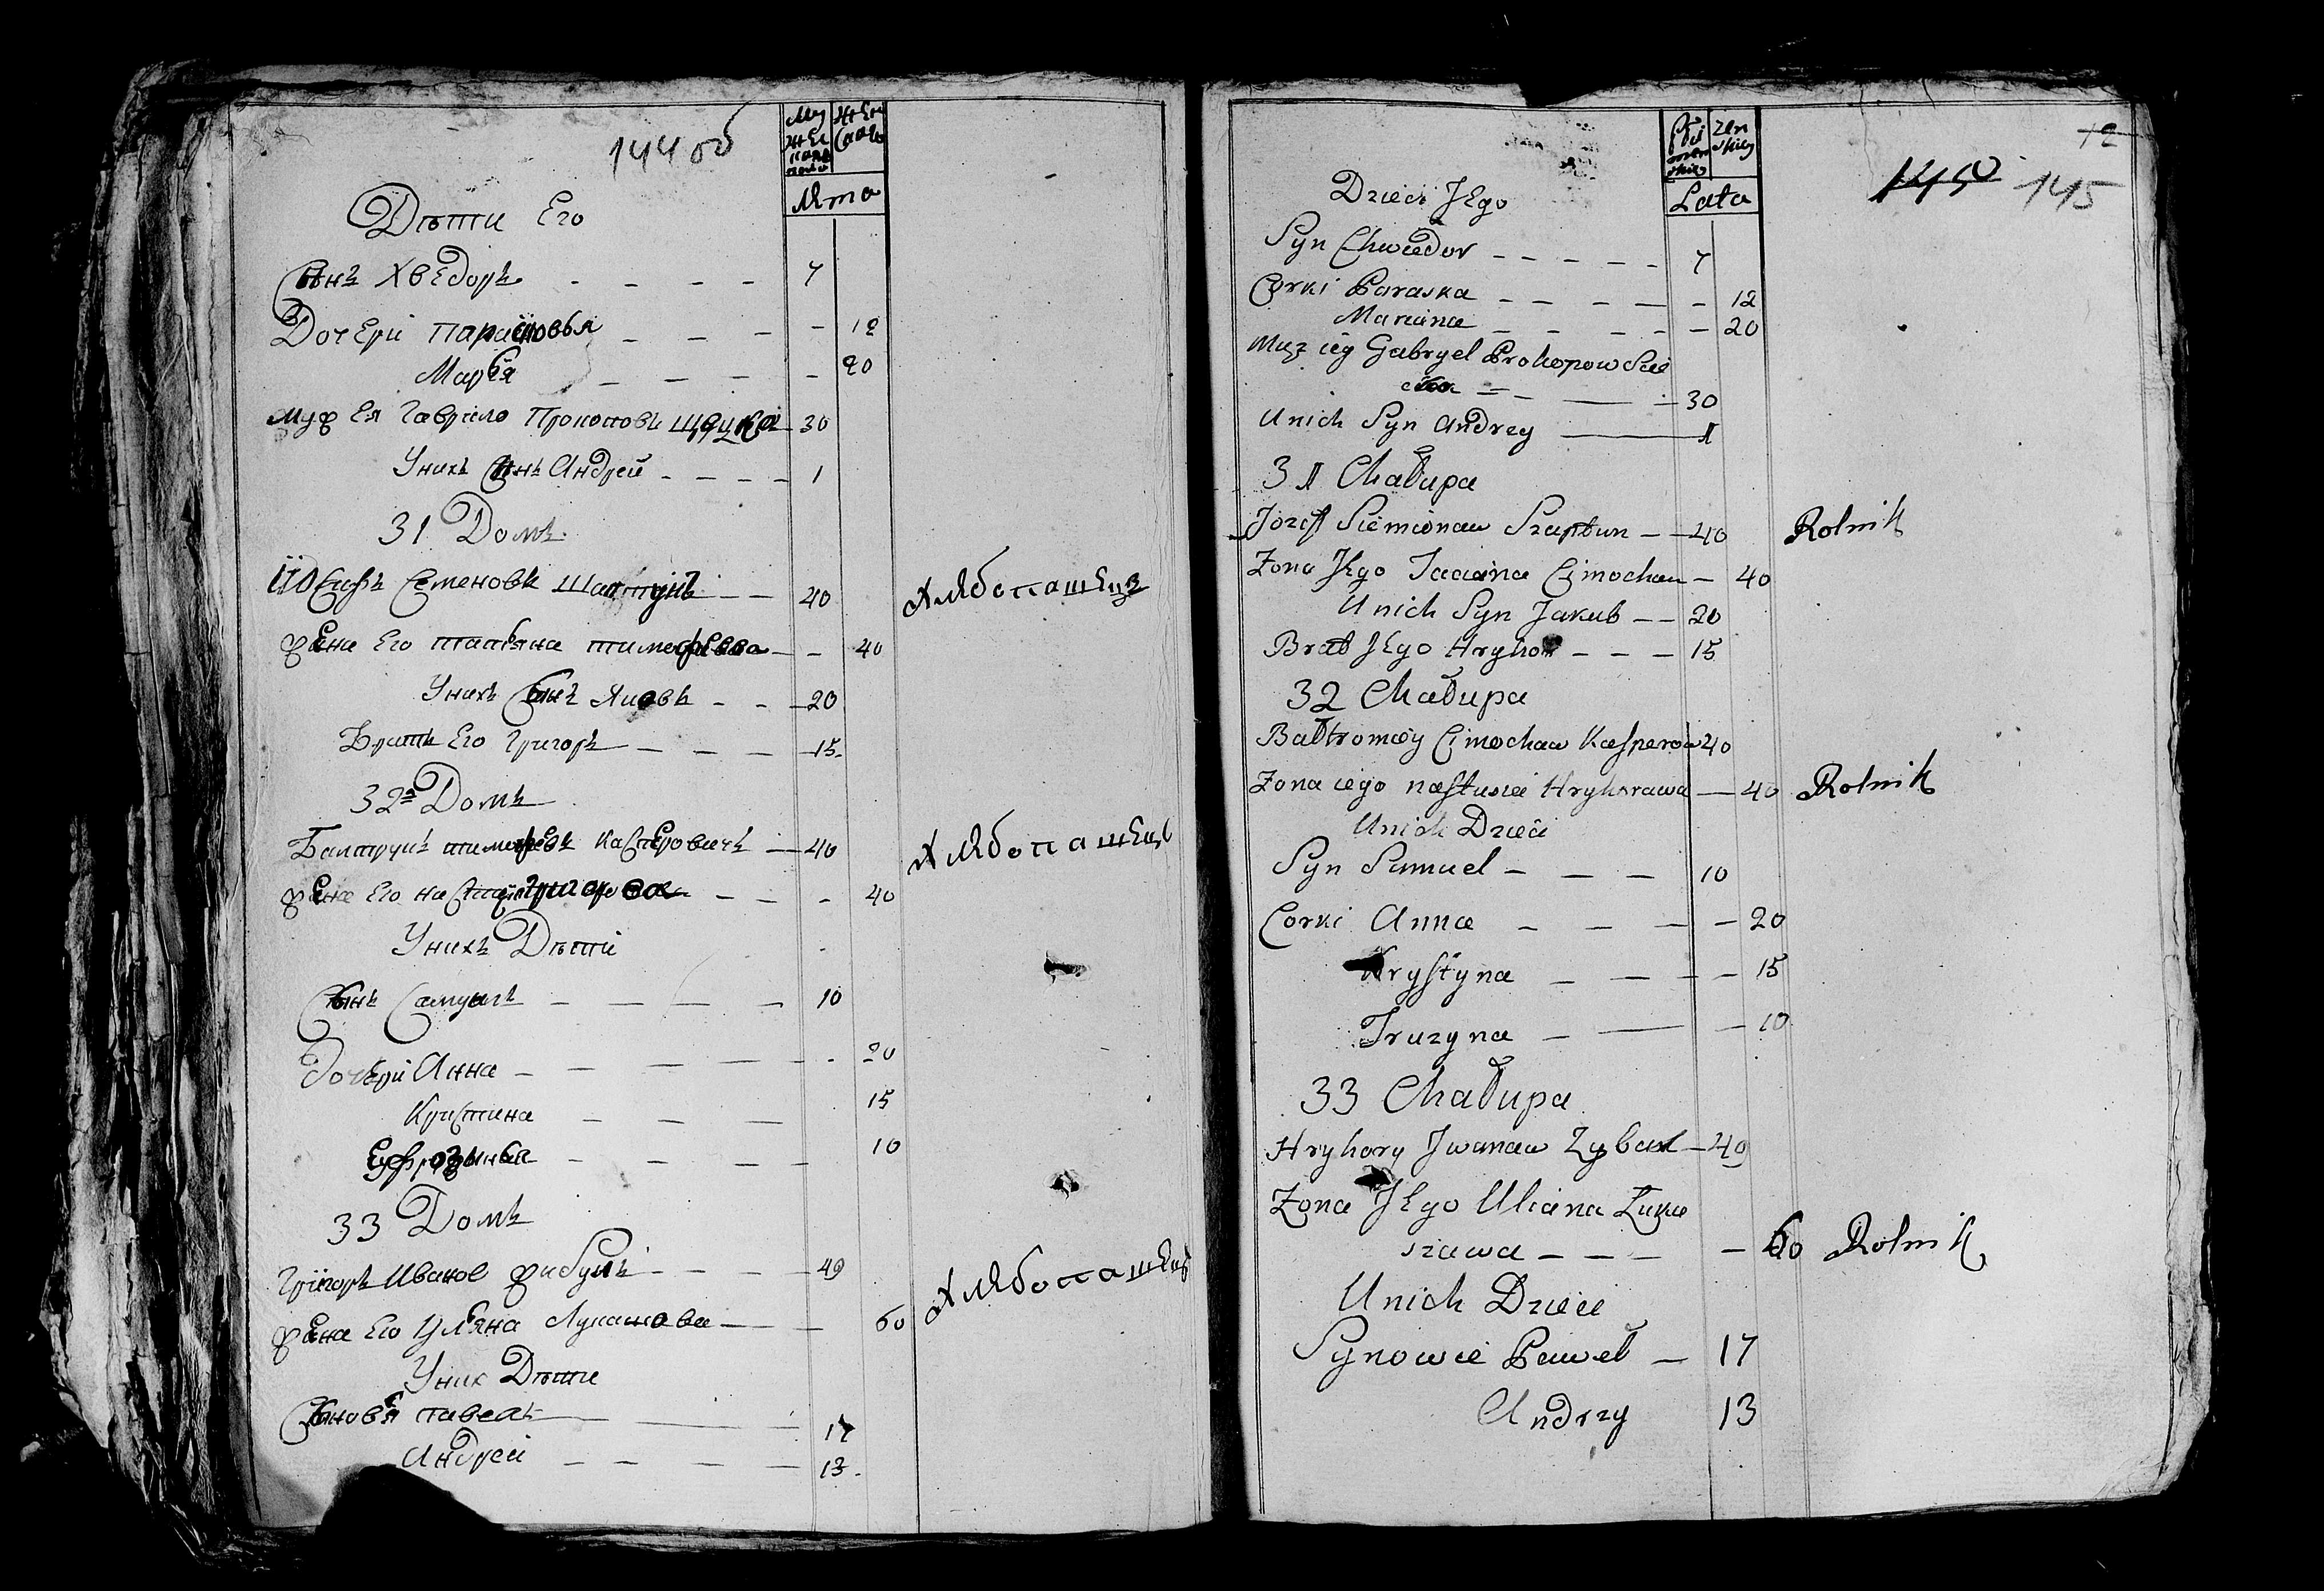 144 об
Мужескаго
Женскаго
Лѣта
Дѣти Его
Сынъ Хведоръ - - - - 7
Дочери Парасковья - - - - 12
Марья - - - - 20
Муж Ея Гаврило Прокоповъ 30
Унихъ Сынъ Андрей - - - - 1
31 Домъ
Иосифъ Семеновъ Шаптунъ - - 40 Хлѣбопашецъ
Жена Его Татьяна Тимофеева - - 40
Унихъ Сынъ Яковъ - - - 20
Братъ Его Григоръ - - - 15
32й Домъ
Балтруцъ Тимофеевъ Касперовичъ - 40 Хлѣбопашецъ
Жена Его Григорова - - - 40
Унихъ Дѣти
Сынъ Самуилъ - - - - 10
Дочери Анна - - - - - - 20
Кристина - - - 15
Еуфрозинья - - - - 10
33 Домъ
Григоръ Иванов Жибулъ - - - 40
Хлѣбопашецъ
Жена Его Ульяна Лукашова - - 60
Уних Дѣти
Сыновья Павелъ 17
Андрей - - - - 13
12
145
Męzkiey
Zenskiey
Lata
Dzieci JEgo
Syn Chwiedor - - - - - 7
Corki Paraska - - - - - 12
Mariana - - - - - 20
Mąz iey Gabryel Prokopow
- - - 30
Unich Syn Andrzy - 1
31 Chałupa
Jozef Siemionaw Szaptun - - 40 Rolnik
Zona JEgo Taciana Cimochaw - 40
Unich Syn Jakub - - 20
Brat JEgo Hryhor - - - 15
32 Chałupa
Bałtromiey Cimochaw Kasperow 40
Zona iego nastusia Hryhorawa - 40 Rolnik
Unich Dzieci
Syn Samuel - - - 10
Corki Anna - - - - 20
Krystyna - - - - 15
Fruzyna - - - 10
33 Chałupa
Hryhory Jwanaw Zybul - 40
Zona JEgo Uliana Łuka
szawa - - - - 60 Rolnik
Unich Dzieci
Synowie Paweł - 17
Andrzy 13